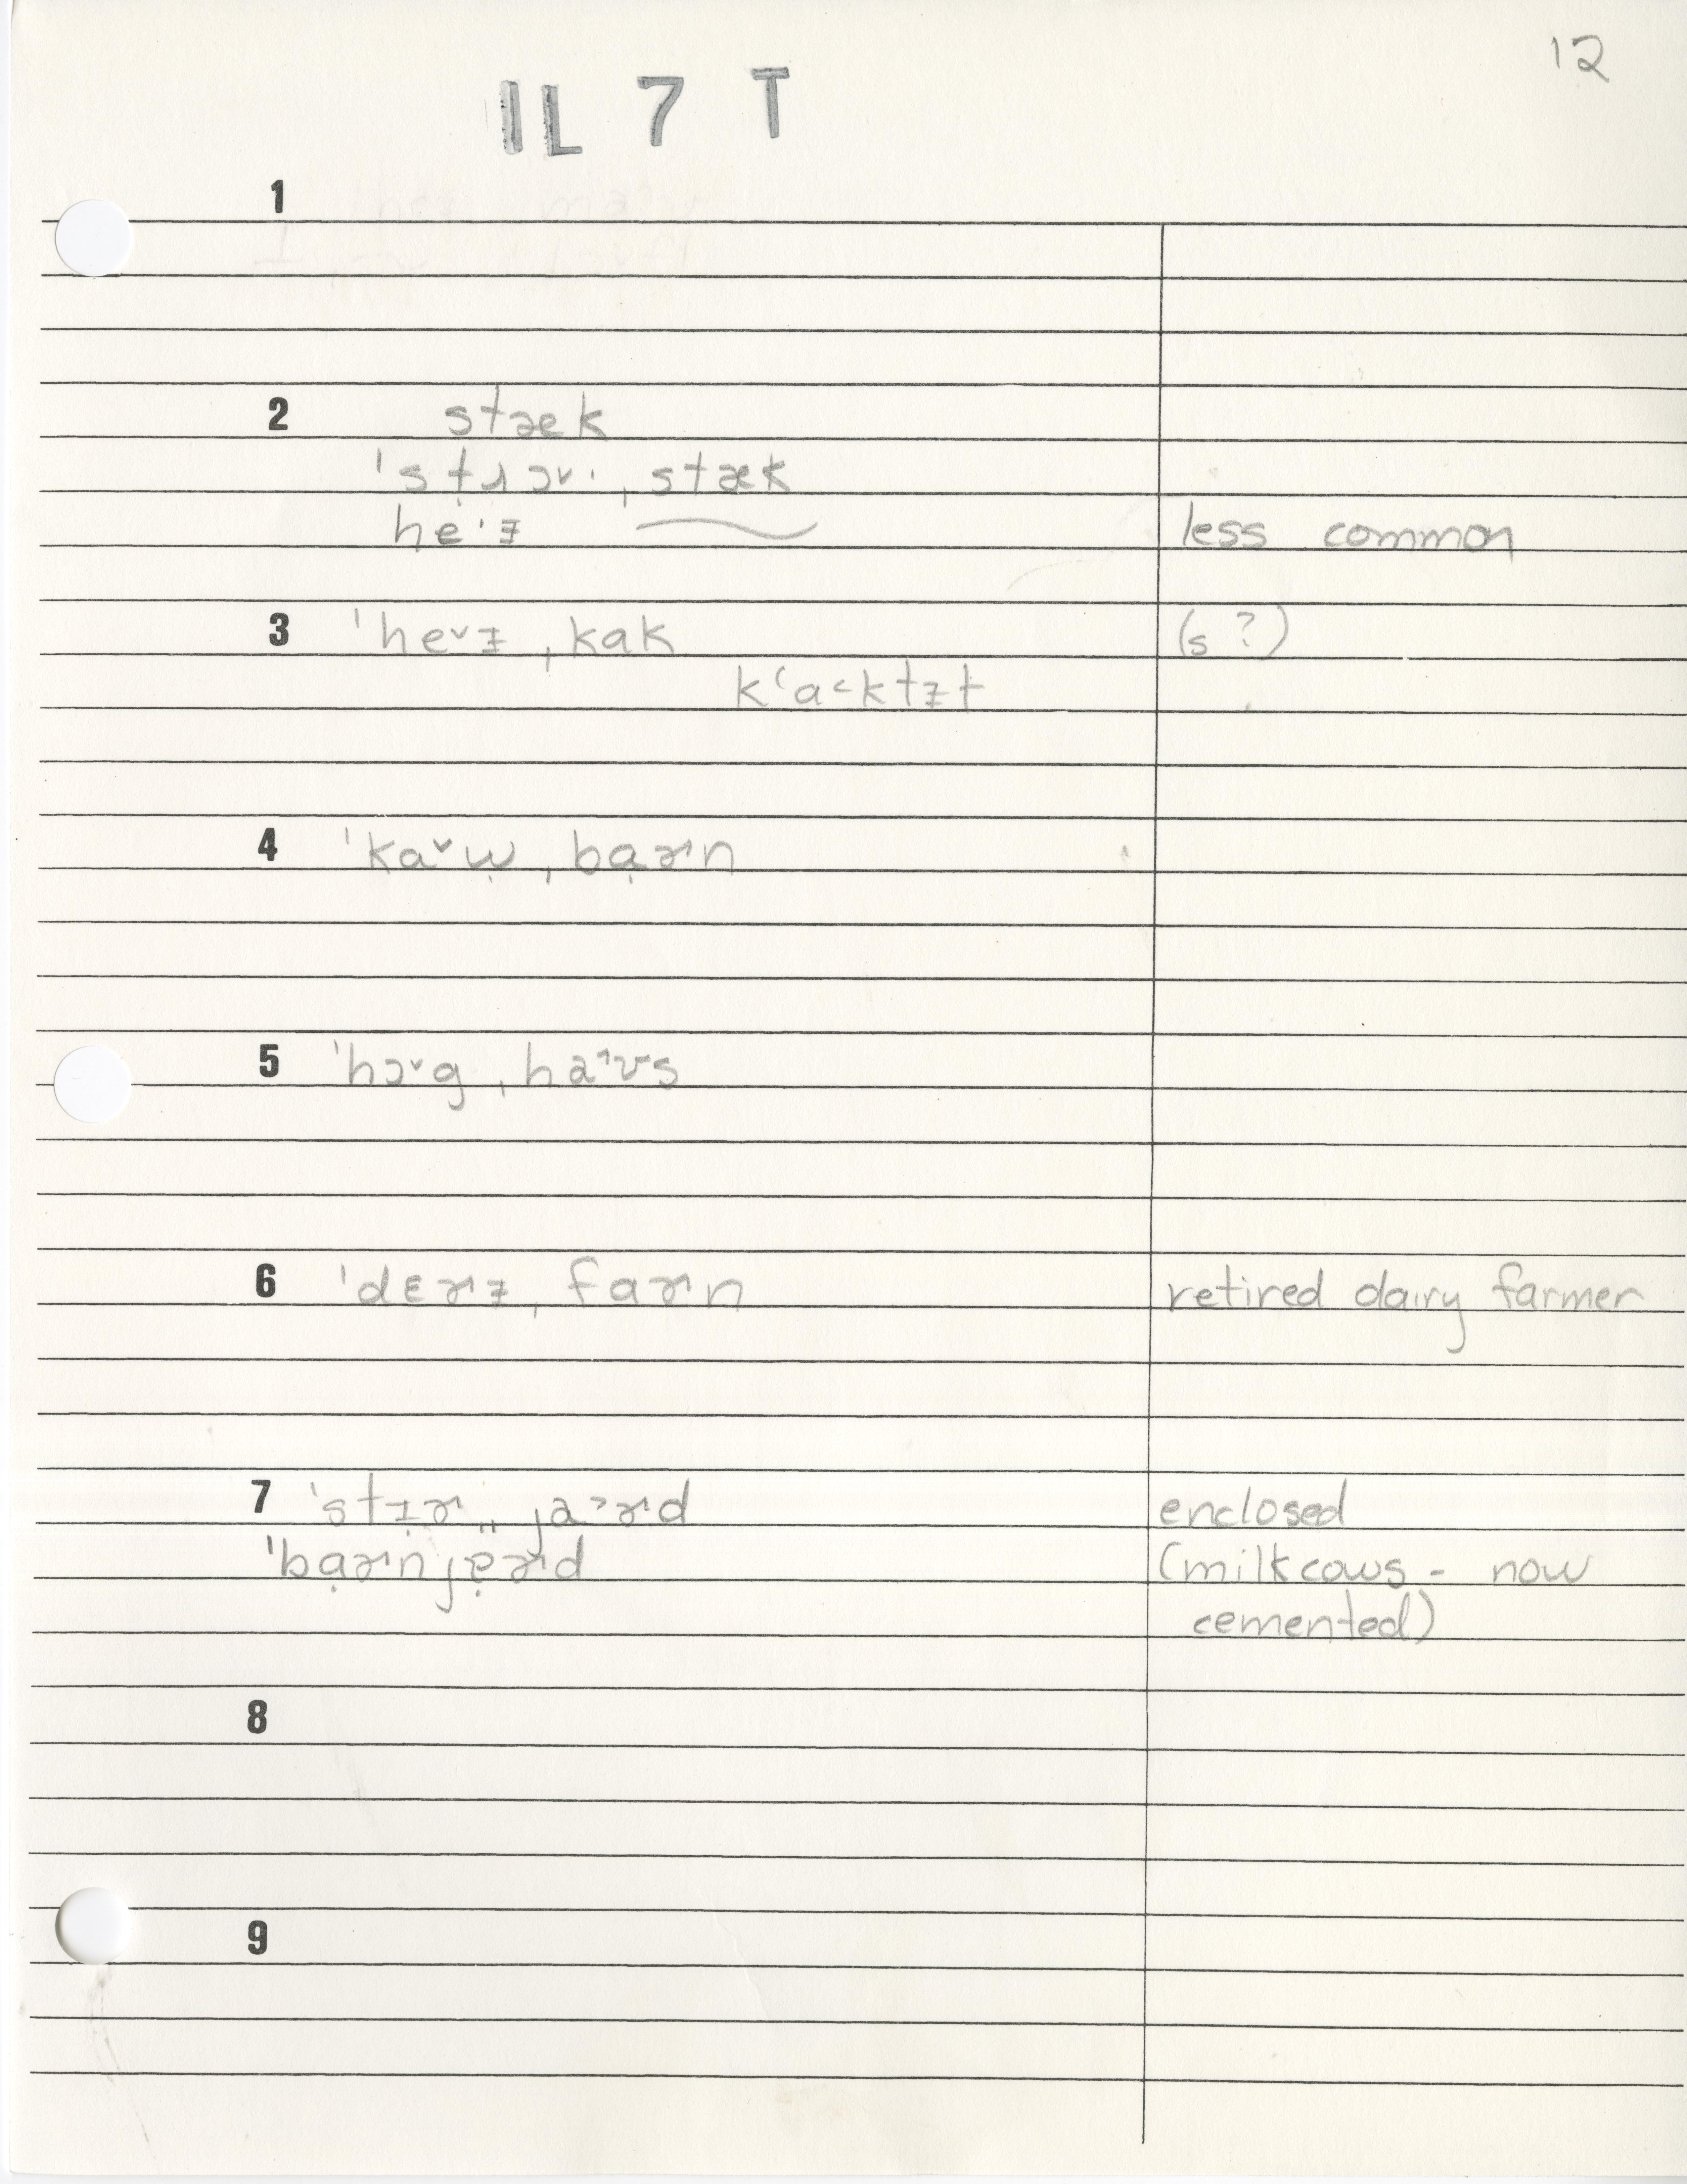 12
IL 7 T
1
2 stæk
ˈstɹɔ˅· ˌstæk
he·ɨ ~ less common
3 ˈhe˅ɨ ˌkak (s ?)
kʻa˂ktɨt
4 ˈka˅ɯ̣ ˌbɑ̣ɚn
5 ˈhɔ˅g ˌha˃ʊs
6 ˈdɛɚɨ ˌfaɚn retired dairy farmer
7 ˈstɪ̣ɚ ˌˌja˃ɚd enclosed
ˈbɑ̣ɚnjɐ̣ɚd (milkcows - now
cemented)
8
9